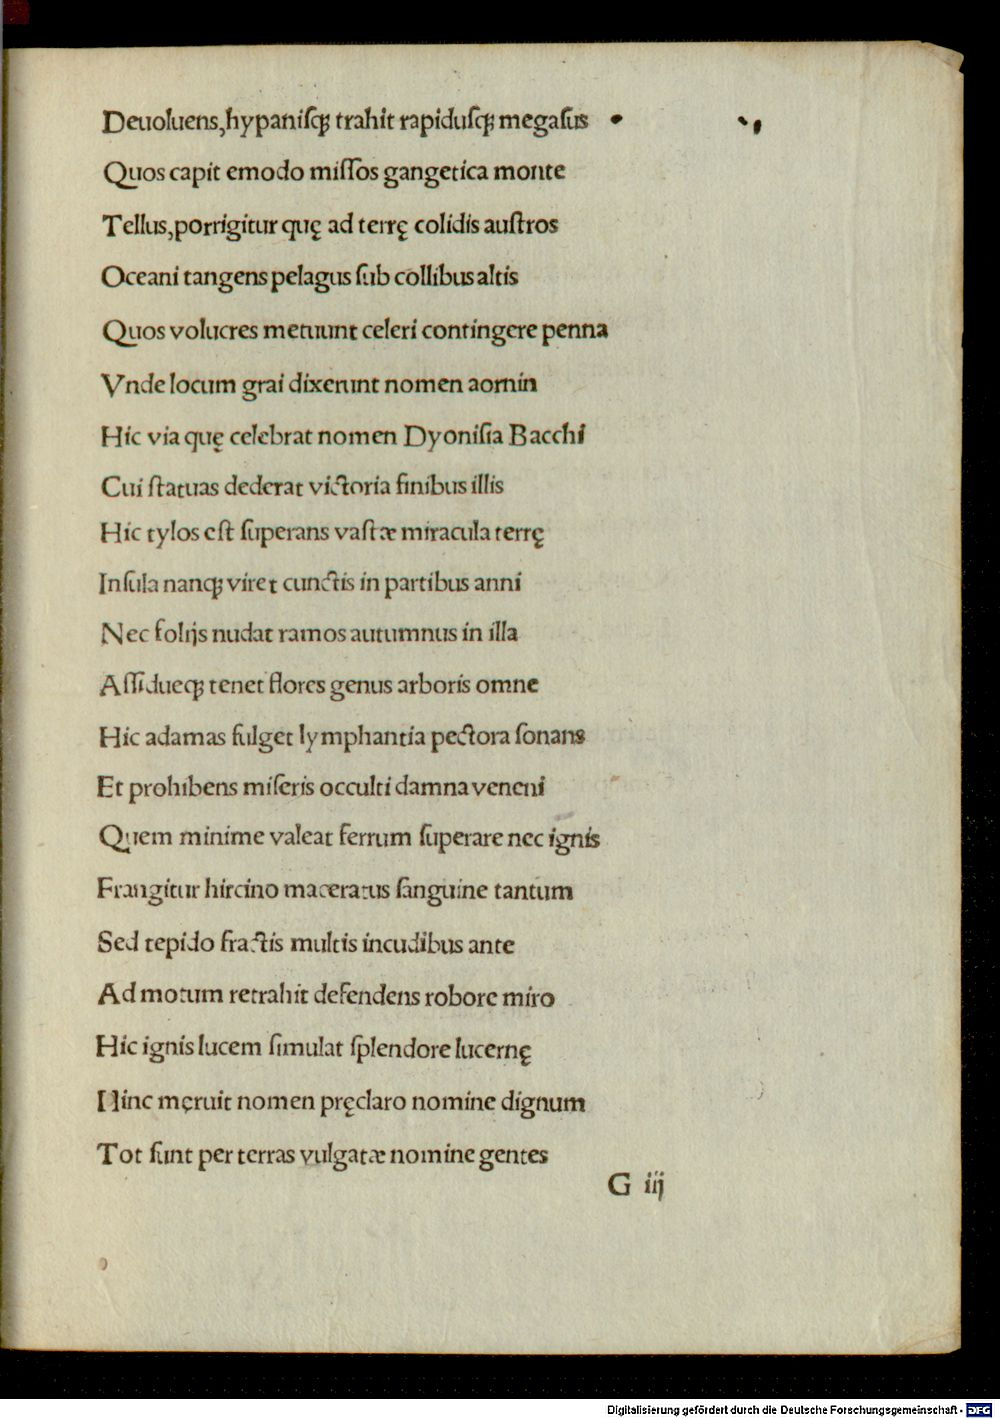 Deuoluens,hypaniſqꝫ trahit rapiduſqꝫ megaſus
Quos capit emodo miſſos gangetica monte
Tellus,porrigitur quę ad terrę colidis auſtros
Oceani tangens pelagus ſub collibus altis
Quos volucres metuunt celeri contingere penna
Vnde locum grai dixerunt nomen aornin
Hic via quę celebrat nomen Dyoniſia Bacchi
Cui ſtatuas dederat victoria finibus illis
Hic tylos eſt ſuperans vaſtæ miracula terrę
Inſula nanqꝫ viret cunctis in partibus anni
Nec folijs nudat ramos autumnus in illa
Aſſidueqꝫ tenet flores genus arboris omne
Hic adamas fulget lymphantia pectora ſonans
Et prohibens miſeris occulti damna veneni
Quem minime valeat ferrum ſuperare nec ignis
Frangitur hircino maceratus ſanguine tantum
Sed tepido fractis multis incudibus ante
Ad motum retrahit defendens robore miro
Hic ignis lucem ſimulat ſplendore lucernę
Hinc męruit nomen pręclaro nomine dignum
Tot ſunt per terras vulgatæ nomine gentes
G iij
Digitalisierung gefördert durch die Deutsche Forschungsgemeinschaft - DFG